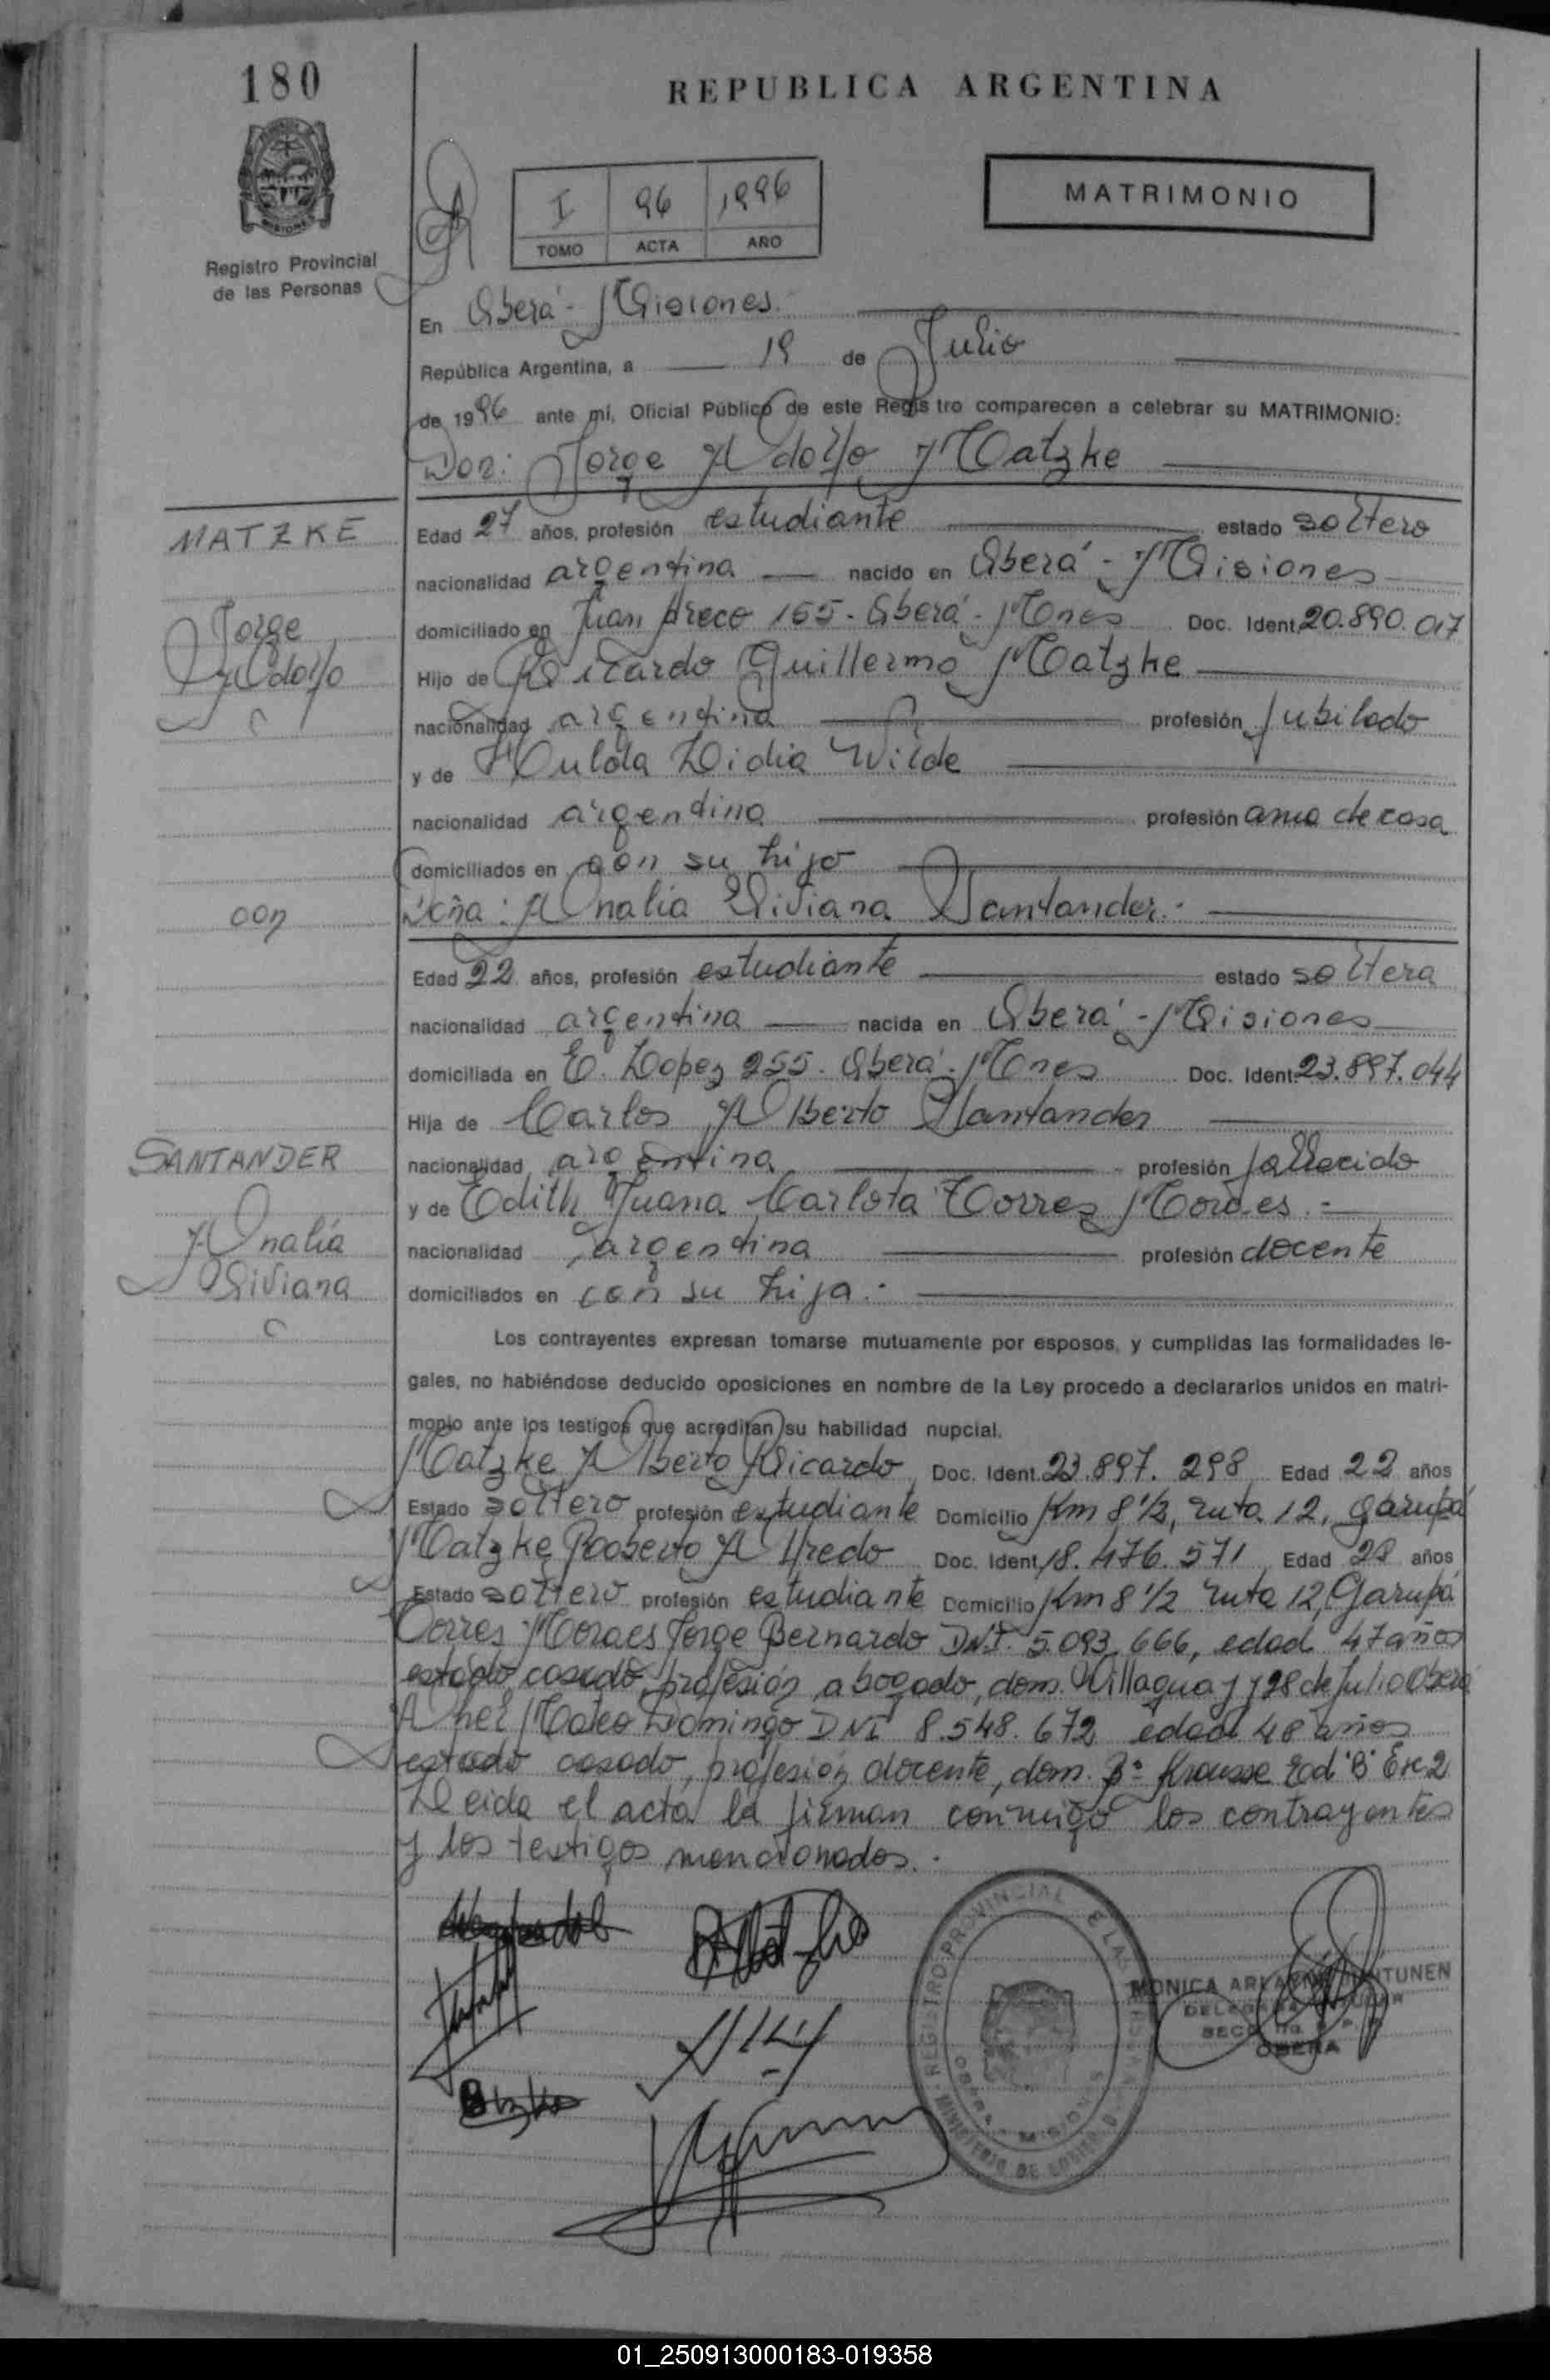 180
REPUBLICA ARGENTINA
Registro Provincial
de las Personas
I 96 1996
TOMO ACTA AÑO
MATRIMONIO
En Oberá - Misiones.
República Argentina, a 19 de Julio
de 1996 ante mí, Oficial Público de este Registro comparecen a celebrar su MATRIMONIO:
Don: Jorge Adolfo Matzke
MATZKE
Jorge
Adolfo
c
con
SANTANDER
Analía
Viviana
c
Edad 27 años, profesión estudiante estado soltero
nacionalidad argentina nacido en Oberá - Misiones
domiciliado en Juan Areco 155 - Oberá - Mnes Doc. Ident. 20.890.017
Hijo de Ricardo Guillermo Matzke
nacionalidad argentina profesión jubilado
y de Hulda Lidia Wilde
nacionalidad argentina profesión ama de casa
domiciliados en con su hijo
Doña: Analía Viviana Santander.-
Edad 22 años, profesión estudiante estado soltera
nacionalidad argentina nacida en Oberá - Misiones
domiciliada en E. Lopez 255 - Oberá - Mnes Doc. Ident. 23.897.044
Hija de Carlos Alberto Santander
nacionalidad argentina profesión fallecido
y de Edith Juana Carlota Torres Moraes.-
nacionalidad argentina profesión docente
domiciliados en con su hija.-
Los contrayentes expresan tomarse mutuamente por esposos, y cumplidas las formalidades le-
gales, no habiéndose deducido oposiciones en nombre de la Ley procedo a declararlos unidos en matri-
monio ante los testigos que acreditan su habilidad nupcial.
Matzke Alberto Ricardo Doc. Ident. 23.897.298 Edad 22 años
Estado soltero profesión estudiante Domicilio Km 8 1/2, ruta 12, Garupá
Matzke Rooberto Alfredo Doc. Ident. 18.476.571 Edad 28 años
Estado soltero profesión estudiante Domicilio Km 8 1/2 ruta 12, Garupá
Torres Moraes Jorge Bernardo D.N.I. 5.093.666, edad 47 años
estado casado, profesión abogado, dom. Villaguay y 28 de Julio Oberá
Mateo Domingo DNI 8.548.672 edad 48 años
estado casado, profesión docente, dom. Bº Krausse Ed "B" Esc 2
Leida el acta la firman conmigo los contrayentes
y los testigos mencionados.-
REGISTRO PROVINCIAL DE LAS PERSONAS
OBERA MISIONES
MINISTERIO DE GOBIERNO
MONICA
DELEGADA TITULAR
OBERA
01_250913000183-019358